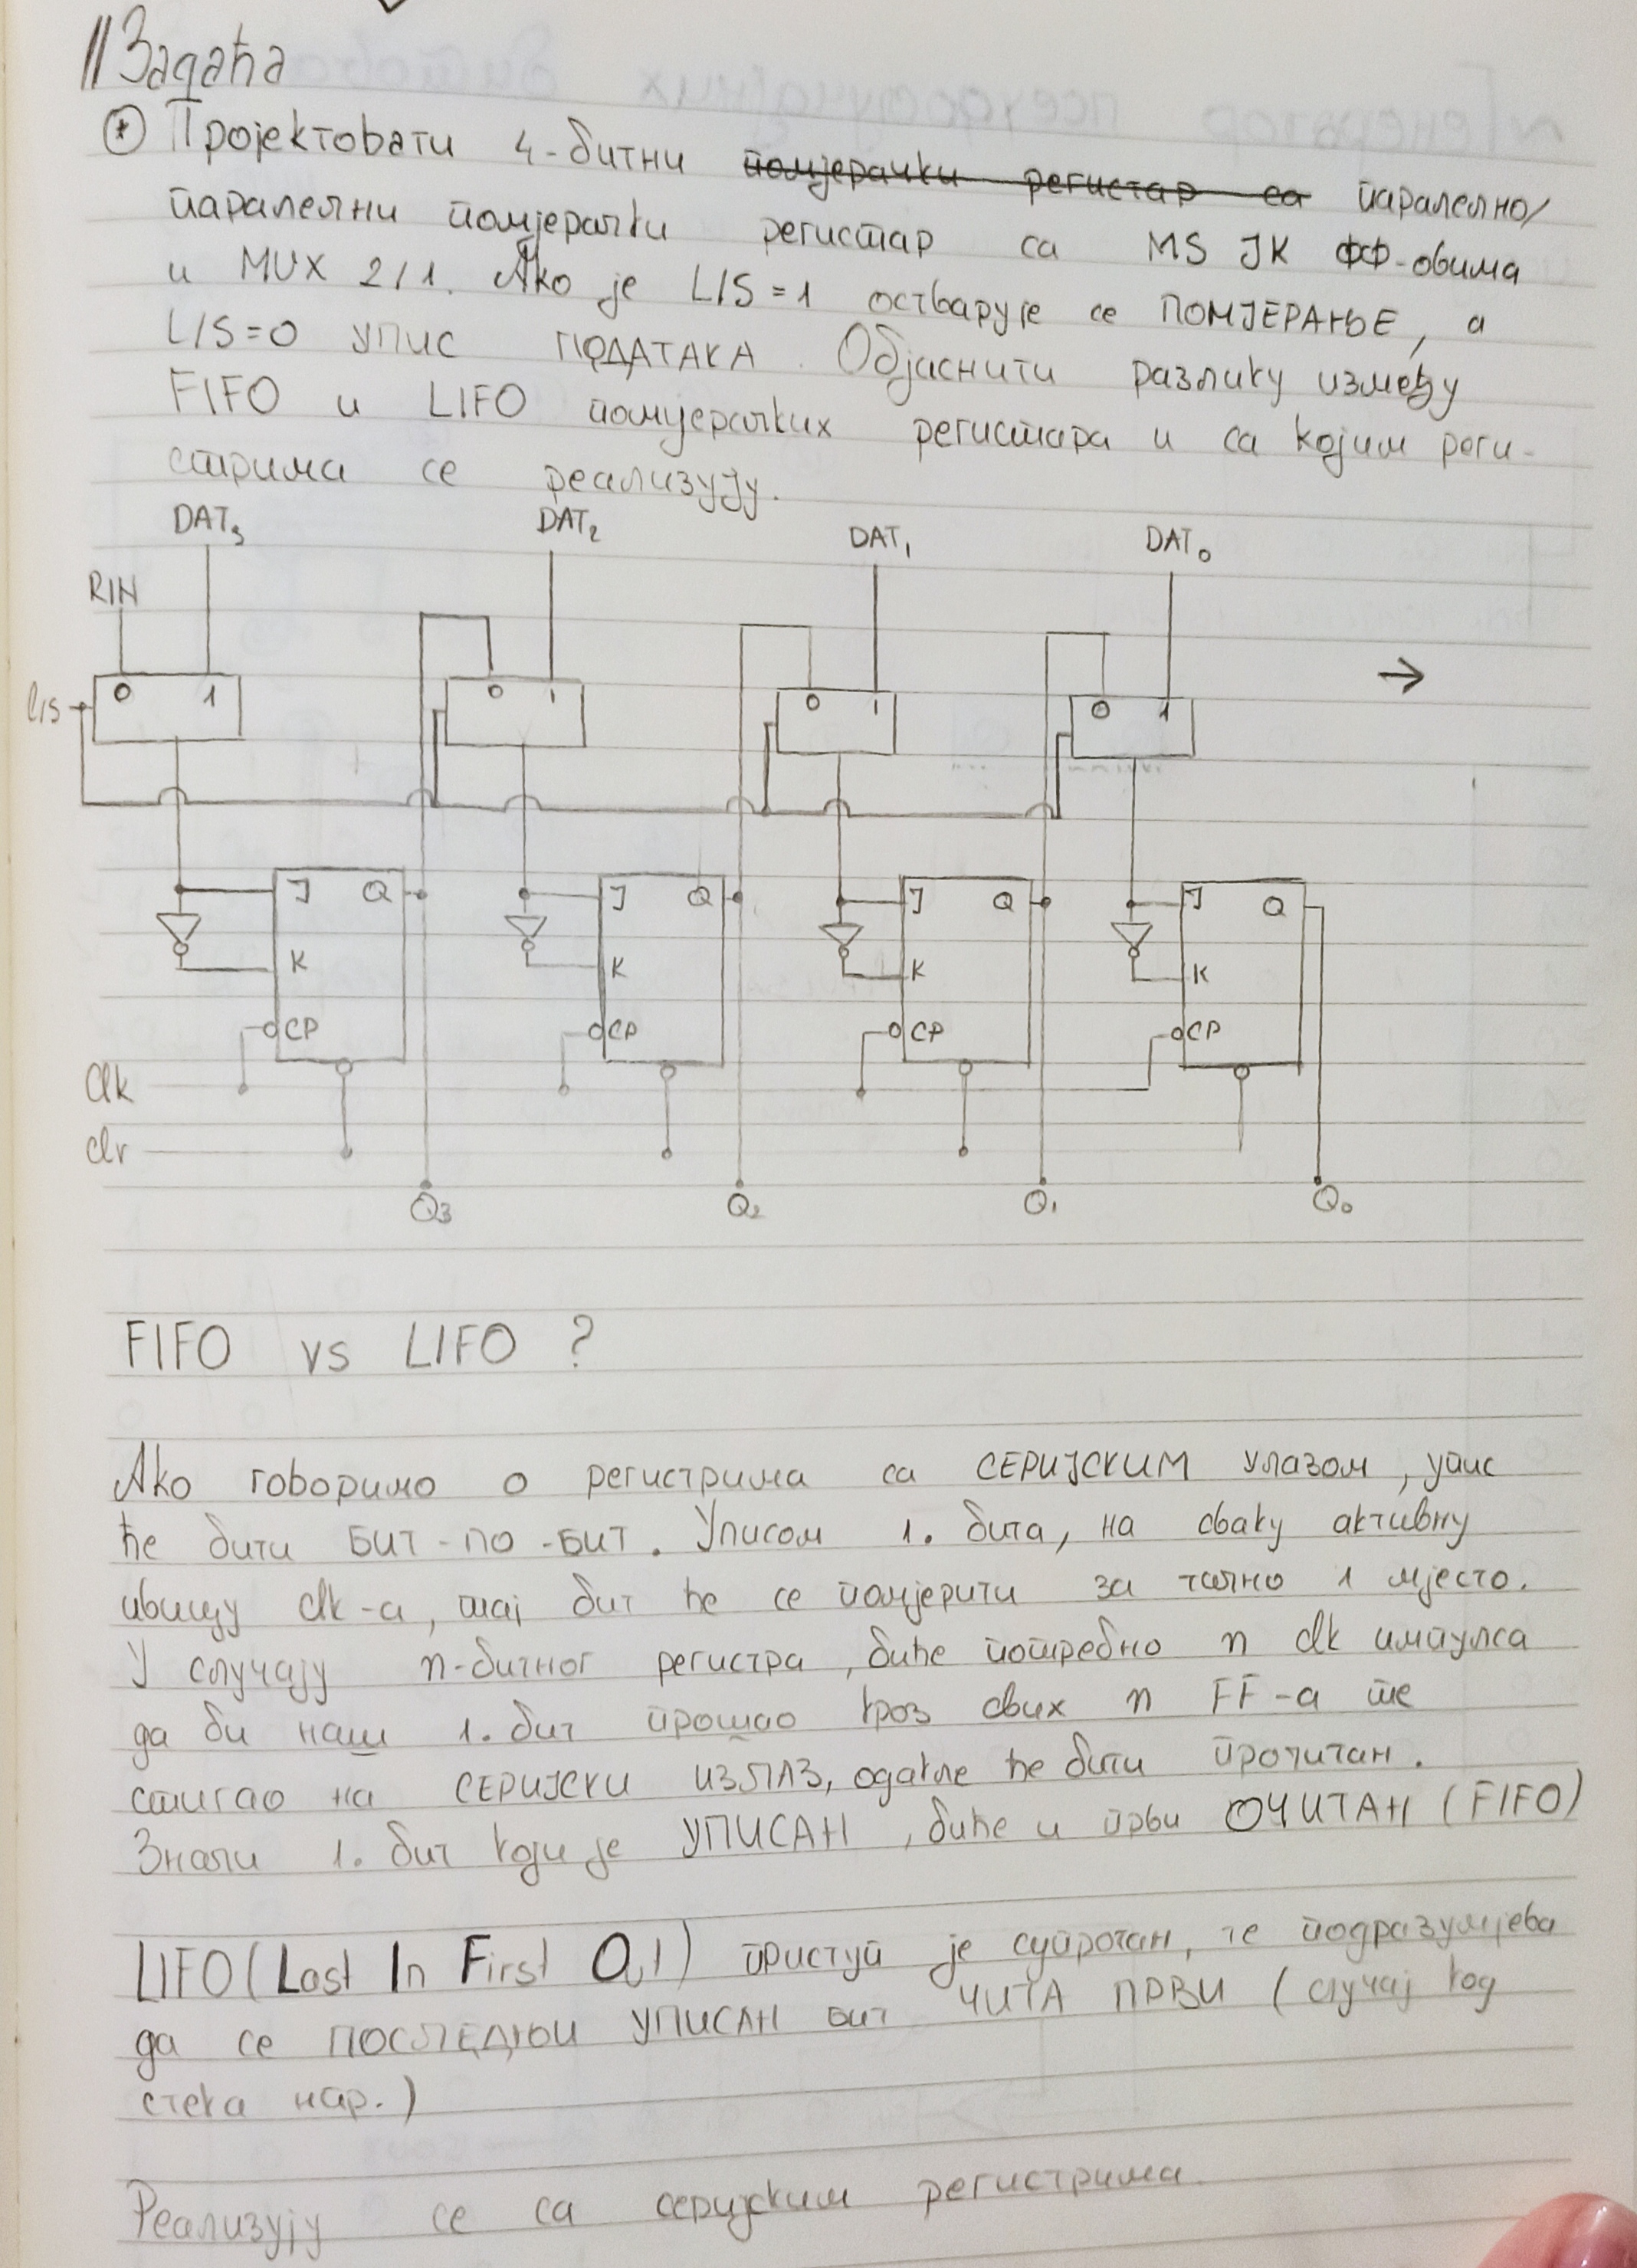 Задаћа
* Пројектовати 4-битни помјерачки регистар са паралелно/
паралелни помјерачки регистар са MS JK ФФ-овима
и MUX 2/1. Ако је L/S=1 остварује се ПОМЈЕРАЊЕ, а
L/S=0 УПИС ПОДАТАКА. Објаснити разлику између
FIFO и LIFO помјерачких регистара и са којим реги-
стрима се реализују.
DAT₃ DAT₂ DAT₁ DAT₀
RIN
L/S 0 1 0 1 0 1 0 1 →
J Q J Q J Q J Q
K K K K
CP CP CP CP
clk
clr
Q₃ Q₂ Q₁ Q₀
FIFO vs LIFO ?
Ако говоримо о регистрима са СЕРИЈСКИМ улазом, упис
ће бити БИТ-ПО-БИТ. Уписом 1. бита, на сваку активну
ивицу clk-a, тај бит ће се помјерити за тачно 1 мјесто.
У случају n-битног регистра, биће потребно n clk импулса
да би наш 1. бит прошао кроз свих n FF-a те
стигао на СЕРИЈСКИ ИЗЛАЗ, одакле ће бити прочитан.
Значи 1. бит који је УПИСАН, биће и први ОЧИТАН (FIFO)
LIFO (Last In First Out) приступ је супротан, те подразумјева
да се ПОСЛЕДЊИ УПИСАН БИТ ЧИТА ПРВИ (случај код
стека нар.)
Реализују се са серијским регистрима.